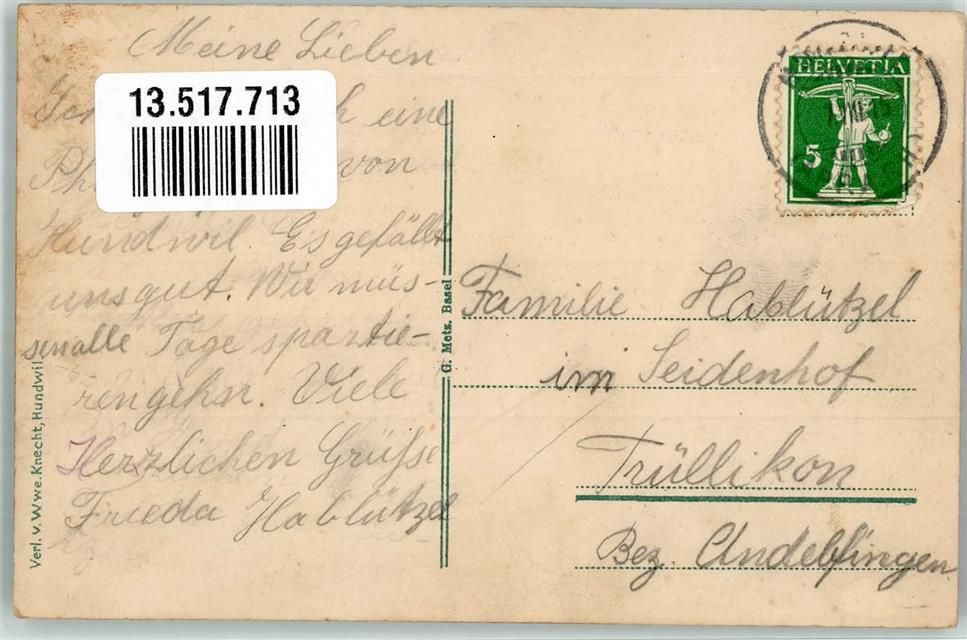 Meine Lieben
13.517.713
eine
von
Hundwil. Es gefällt
uns gut. Wir müs-
sen alle Tage spartie-
ren gehn. Viele
Herzlichen Grüsse
Frieda Hablützel
HELVETIA
5
Familie Hablützel
im Seidenhof
Trüllikon
Bez. Andelfingen
G. Metz, Basel
Verl. v. Wwe. Knecht, Hundwil